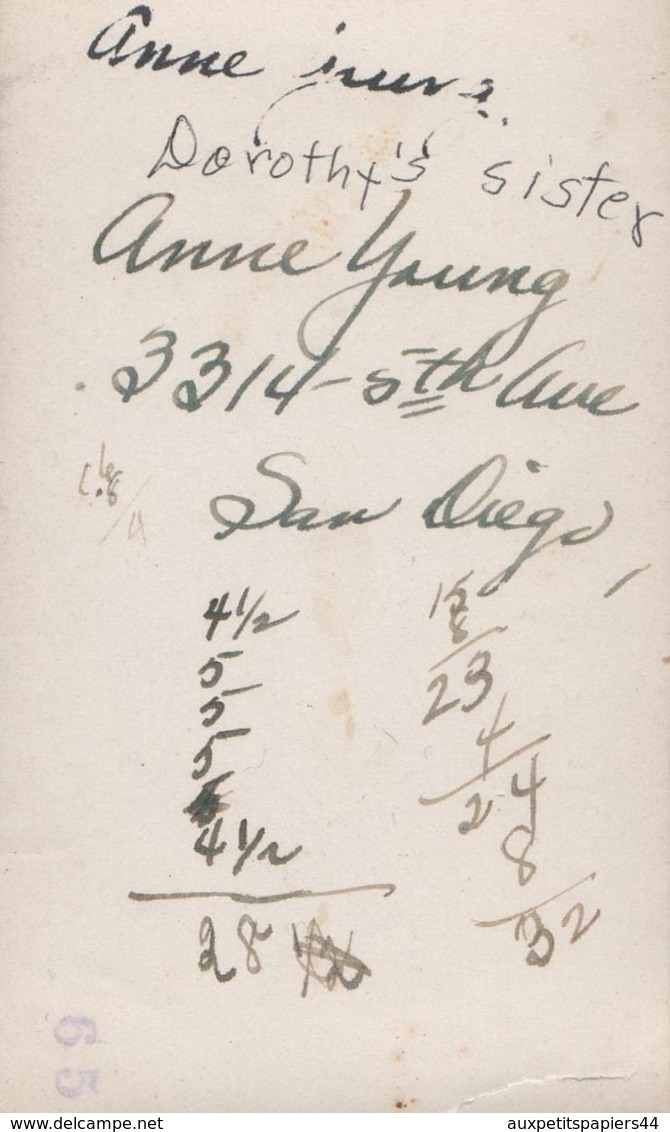 Anne
Dorothy's sister
Anne Young
3314 - 5th Ave
San Diego,
4 1/2
5
5
5
4 1/2
28
23
4
24
8
32
65
delcampe.net
auxpetitspapiers44